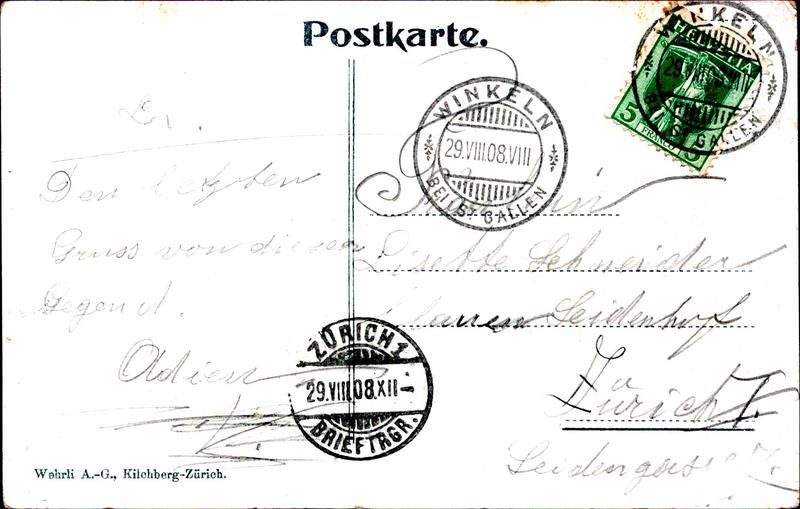 Postkarte.
WINKELN
29.VIII.08.VIII
BEI ST. GALLEN
WINKELN
29.VIII.08.VIII
BEI ST. GALLEN
HELVETIA
5
FRANCO
5
Den letzten
Gruss von dieser
Gegend.
Adieu
Fräulein
Lisette Schneider
Seidenhof
Zürich I.
Seidengasse
ZÜRICH 1
29.VIII.08.XII-
BRIEFTRGR.
Wehrli A.-G., Kilchberg-Zürich.